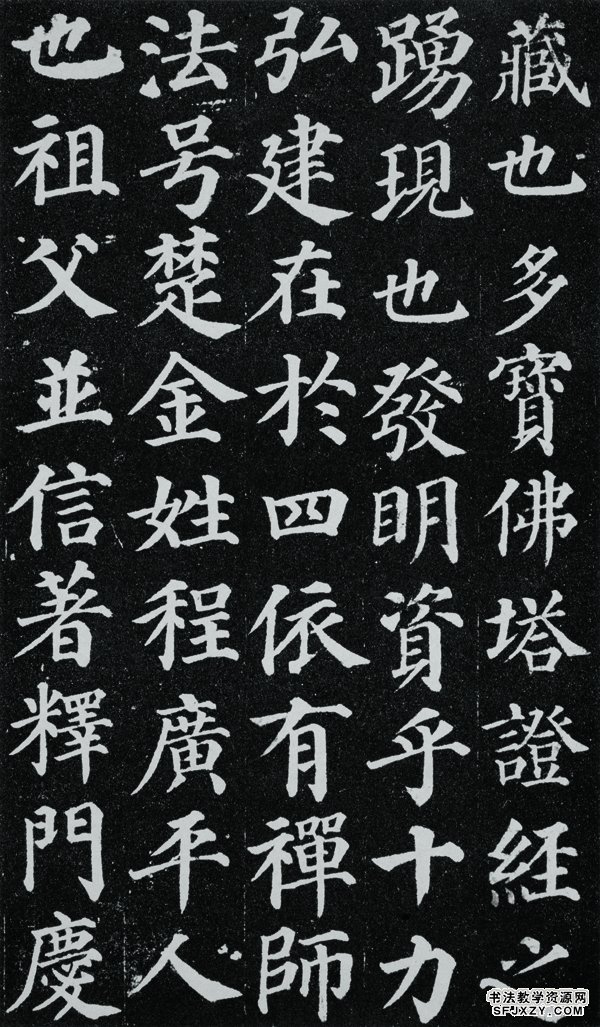 藏也多寶佛塔證經之
踴現也發明資乎十力
弘建在於四依有禪師
法号楚金姓程廣平人
也祖父並信著釋門慶
书法教学资源网
SFJXZY.COM